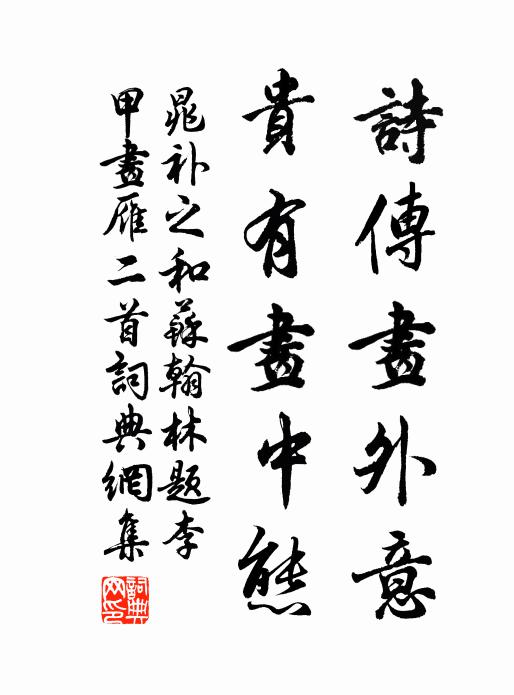 詩傳畫外意
貴有畫中態
晁补之和蘇翰林題李
甲畫雁二首詞典網集
詞典網印